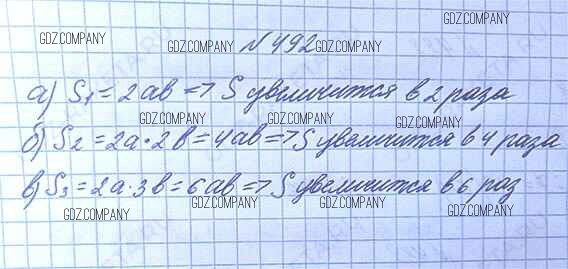 GDZ.COMPANY GDZ.COMPANY
GDZ.COMPANY № 492 GDZ.COMPANY
а) S₁ = 2ab => S увеличится в 2 раза
GDZ.COMPANY GDZ.COMPANY GDZ.COMPANY
б) S₂ = 2a·2b = 4ab => S увеличится в 4 раза
GDZ.COMPANY GDZ.COMPANY GDZ.COMPANY
в) S₃ = 2a·3b = 6ab => S увеличится в 6 раз
GDZ.COMPANY GDZ.COMPANY GDZ.COMPANY GDZ.COMPANY